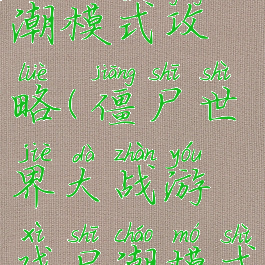 潮模式攻
lüè jiāng shī shì
略(僵尸世
jiè dà zhàn yóu
界大战游
xì shī cháo mó shì
戏尸潮模式